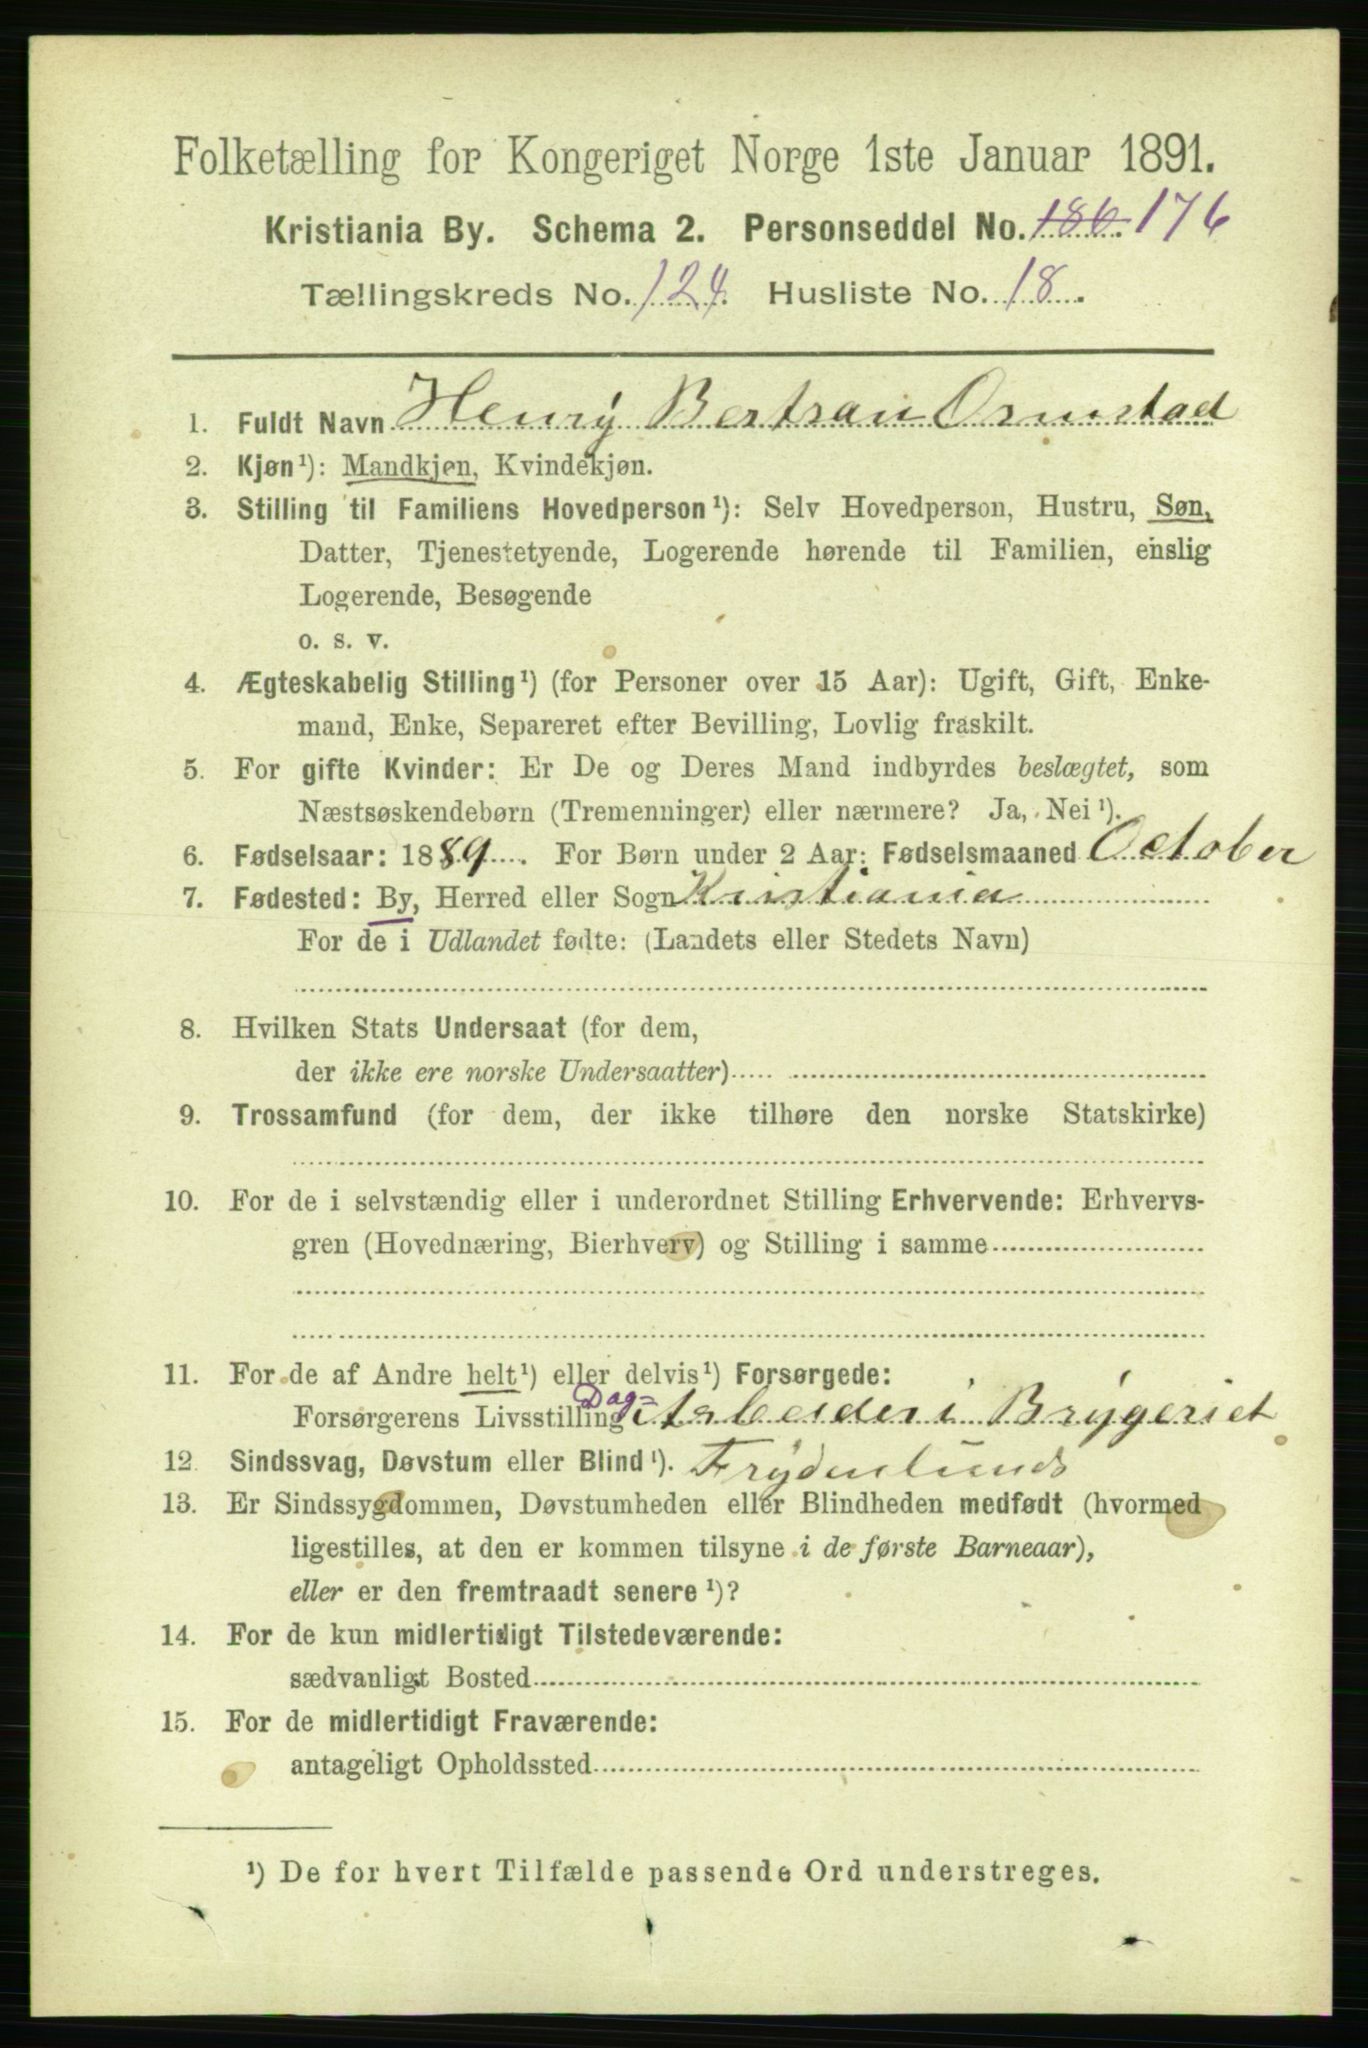 Folketælling for Kongeriget Norge 1ste Januar 1891.
Kristiania By. Schema 2. Personseddel No. 186. 176
Tællingskreds No. 124. Husliste No. 18.
1. Fuldt Navn Henry Bertran Ormstad
2. Kjøn¹): Mandkjøn, Kvindekjøn.
3. Stilling til Familiens Hovedperson¹): Selv Hovedperson, Hustru, Søn,
Datter, Tjenestetyende, Logerende hørende til Familien, enslig
Logerende, Besøgende
o. s. v.
4. Ægteskabelig Stilling¹) (for Personer over 15 Aar): Ugift, Gift, Enke-
mand, Enke, Separeret efter Bevilling, Lovlig fraskilt.
5. For gifte Kvinder: Er De og Deres Mand indbyrdes beslægtet, som
Næstsøskendebørn (Tremenninger) eller nærmere? Ja, Nei¹).
6. Fødselsaar: 1889. For Børn under 2 Aar: Fødselsmaaned October
7. Fødested: By, Herred eller Sogn Kristiania
For de i Udlandet fødte: (Landets eller Stedets Navn)
8. Hvilken Stats Undersaat (for dem,
der ikke ere norske Undersaatter)
9. Trossamfund (for dem, der ikke tilhøre den norske Statskirke)
10. For de i selvstændig eller i underordnet Stilling Erhvervende: Erhvervs-
gren (Hovednæring, Bierhverv) og Stilling i samme
11. For de af Andre helt¹) eller delvis¹) Forsørgede:
Forsørgerens Livsstilling Dag- Arbeider i Brygeriet
12. Sindssvag, Døvstum eller Blind¹). Frydenlunds
13. Er Sindssygdommen, Døvstumheden eller Blindheden medfødt (hvormed
ligestilles, at den er kommen tilsyne i de første Barneaar),
eller er den fremtraadt senere¹)?
14. For de kun midlertidigt Tilstedeværende:
sædvanligt Bosted
15. For de midlertidigt Fraværende:
antageligt Opholdssted
¹) De for hvert Tilfælde passende Ord understreges.